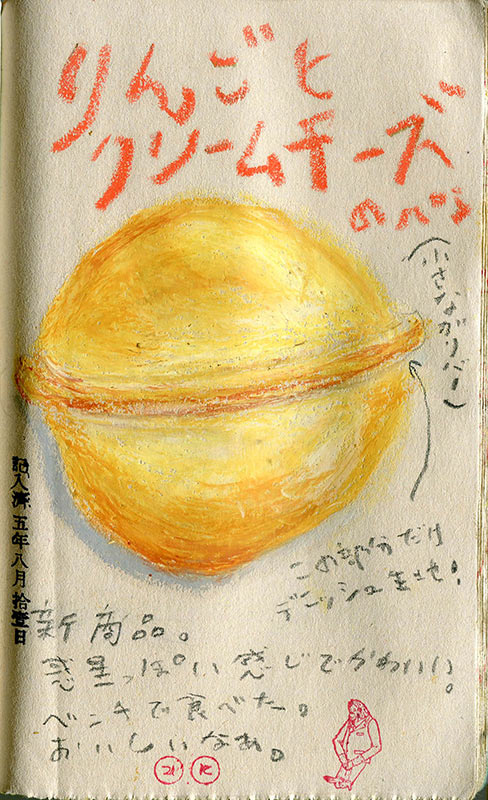 りんごと
クリームチーズ
のパン
(小さなガリバー)
この部分だけ
デニッシュ生地!
記入済五年八月拾壹日
新商品。
惑星っぽい感じでかわいい。
ベンチで食べた。
おいしいなぁ。